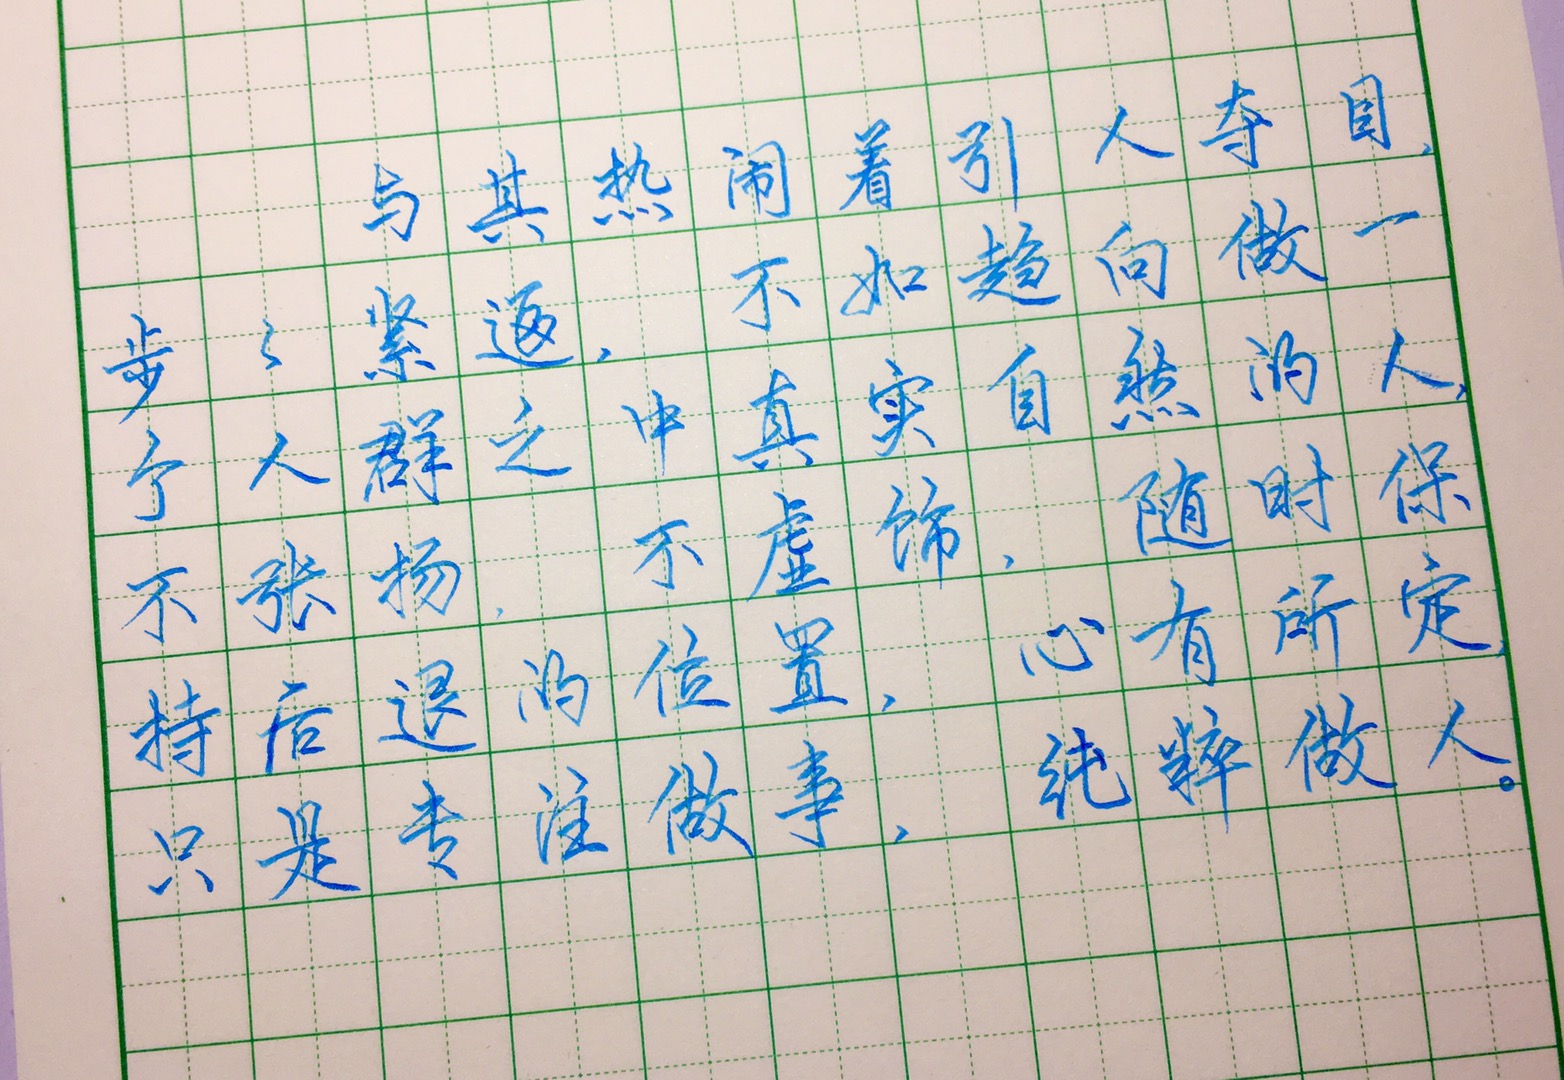 与其热闹着引人夺目,
步々紧逼, 不如趋向做一
个人群之中真实自然的人,
不张扬, 不虚饰, 随时保
持后退的位置, 心有所定,
只是专注做事, 纯粹做人。